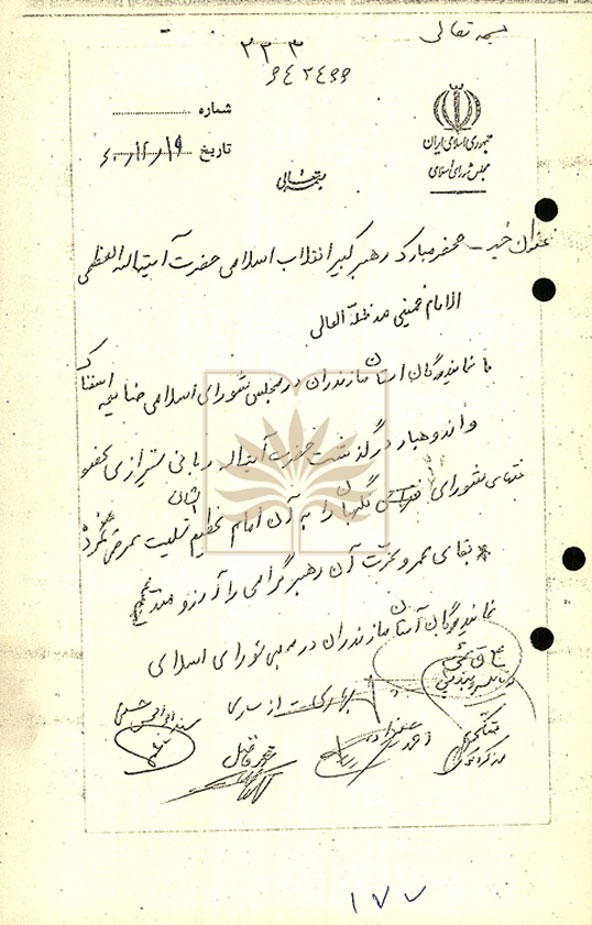 بسمه تعالی
۲۳۳
۶۴۲۴۹۹
جمهوری اسلامی ایران
مجلس شورای اسلامی
شماره
تاریخ ۶۰/۱۲/۱۹
بسمه تعالی
محضر مبارک رهبر کبیر انقلاب اسلامی حضرت آیت اله العظمی
الامام خمینی مد ظله العالی
ما نمایندگان استان مازندران در مجلس شورای اسلامی ضایعه اسفناک
و اندوهبار درگذشت حضرت آیت اله ربانی شیرازی عضو
فقهای شورای نگهبان را به آن امام عظیم الشان تسلیت عرض
بقای عمر و عزت آن رهبر گرامی را آرزومندیم
نمایندگان استان مازندران در مجلس شورای اسلامی
از ساری
۱۷۷